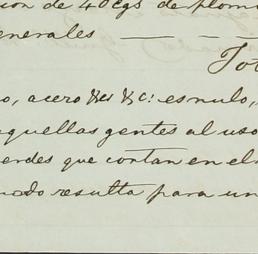 ion de 40 Cgs de plom
enerales — — —
To
o, acero &es &c: es nulo,
aquellas gentes al uso
erdes que cortan en el
modo resulta para un